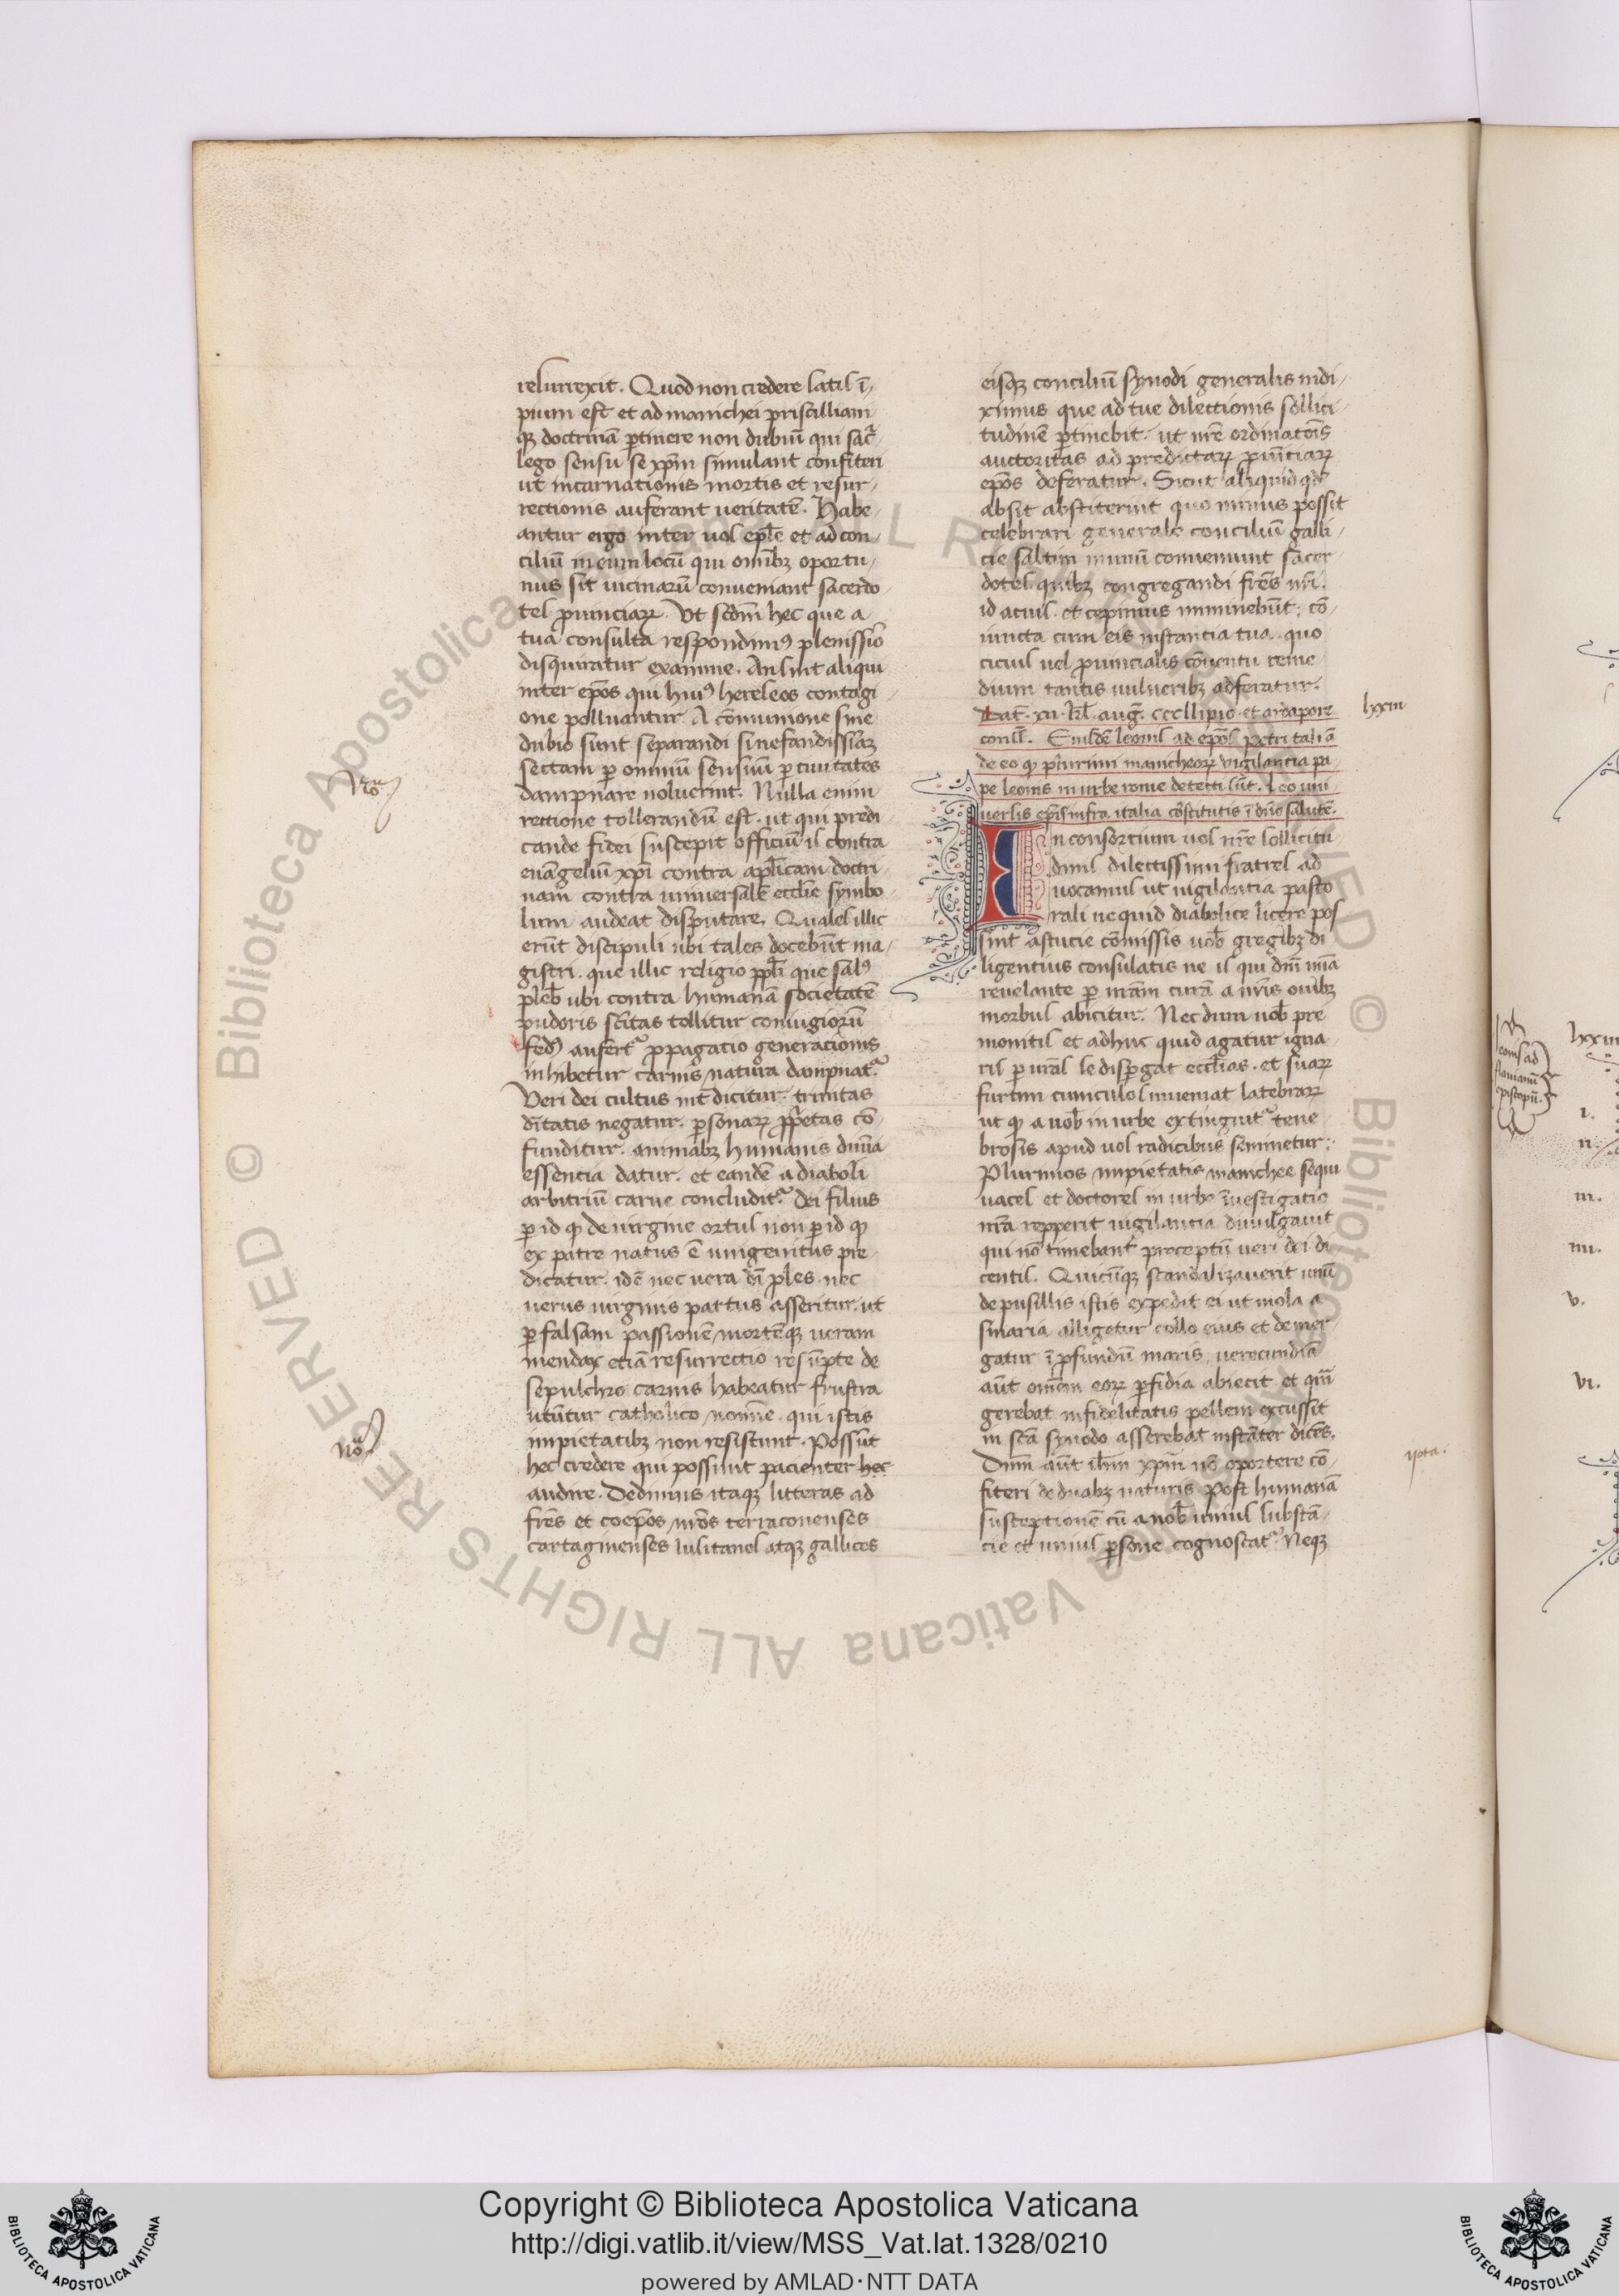 resurrexit. Quod non credere satis ī-
pium est et ad manichei priscilliani
qꝫ doctrinā ꝑtinere non dubiū qui sac̄-
lego sensu se xp̄m simulant confiteri
ut incarnationis mortis et resur-
rectionis auferant ueritatē. Habe-
antur ergo inter uos ep̄le et ad con-
ciliū in eum locū qui omībꝫ oportu-
nus sit uicinarū conueniant sacerdo-
tes ꝓuinciaꝝ. Ut scd̄m hec que a
tua consulta respondimꝰ plenissīo
disquiratur examine. An sint aliqui
inter ep̄os qui huiꝰ hereseos contagi-
one polluantur. A cōmunione sine
dubio sunt separandi si nefandissīaꝫ
sectam ꝑ omniū sensuū ꝑuitates
dampnare noluerint. Nulla enim
rectione tollerandū est. ut qui predi-
cande fidei suscepit officiū is contra
euāgeliū xp̄i contra apl̄icam doctri-
nam contra uniuersalē eccl̄ie symbo-
lum audeat disputare. Quales illic
erūt discipuli ubi tales docebūt ma-
gistri. que illic religio ppl̄i que salꝰ
pleb̄ ubi contra humanā societatē
pudoris sc̄itas tollitur coniugiorū
fedꝰ aufert̉ ꝓpagatio generacionis
inhibetur carnis natura dampnat̉
Veri dei cultus int̄dicitur. trinitas
dītatis negatur. ꝑsonaꝝ ꝓp̄etas cō-
funditur. animabꝫ humanis diuīa
essencia datur. et eandē a diaboli
arbitriū carne concludit̉ dei filius
ꝑ id ꝙ de uirgine ortus non ꝑ id ꝙ
ex patre natus ē unigenitus pre-
dicatur. idē nec uera dī ples. nec
uerus uirginis partus asseritur. ut
ꝑ falsam passionē mortēqꝫ ueram
mendax etiā resurrectio resūpte de
sepulchro carnis habeatur frustra
utūtur catholico nomīe. qui istis
impietatibꝫ non resistunt. Possūt
hec credere qui possunt pacienter hec
audire. Dedimus itaqꝫ litteras ad
fr̄es et coep̄os nr̄os terraconenses
cartaginenses lusitanos atqꝫ gallicos
eisqꝫ conciliū synodi generalis indi-
ximus que ad tue dilectionis sollici-
tudinē ꝑtinebit. ut nr̄e ordinatōis
auctoritas ad predictaꝝ ꝓuīciaꝝ
ep̄os deferatur. Sicut aliquid qd̄
absit abstiterint quo minus possit
celebrari generale conciliū galli-
cie saltim in unū conueniunt sacer-
dotes quibꝫ congregandi fr̄es nr̄i.
id acius. et cepimus imminebūt. cō-
iuncta cum eis instantia tua. quo
cicius uel ꝓuincialis cōuentu reme-
dium tantis uulneribꝫ adferatur.
Dat̄. xii. kl̄. auḡ. ccccllipio. et ardapore
lxxiii
consl̄. Eiusdē leonis ad ep̄os petri taliā
de eo ꝙ plurimi manicheoꝝ uigilantia pa-
pe leonis in urbe rome detecti sūt. Leo uni
uersis ep̄is infra italia cōstitutis ī dn̄o salutē.
In consortium uos nr̄e sollicitu-
dinis dilectissimi fratres ad
uocamus ut uigilantia pasto
rali ne quid diabolice licere pos
sint astucie cōmissis uob̄ gregibꝫ di
ligentius consulatis ne is qui dn̄i mīa
reuelante ꝑ nr̄am curā a nr̄is ouibꝫ
morbus abicitur. Nec dum uob̄ pre
monitis et adhuc quid agatur igna
ris ꝑ ur̄as se disꝑgat eccl̄ias. et suaꝝ
furtim cuniculos inueniat latebraꝝ
ut ꝙ a nob̄ in urbe extinguit̉ tene
brosis apud uos radicibus seminetur.
Plurimos impietatis manichee sequi
uaces et doctores in urbe īuestigatio
nr̄a repperit uigilancia diuulgauit
qui nō timebant preceptū ueri dei di-
centis. Quicūqꝫ scandalizauerit unū
de pusillis istis expedit ei ut mola a
sinaria alligetur collo eius et demer-
gatur ī ꝓfundū maris. uerecundiā
aūt om̄em eoꝝ ꝑfidia abiecit et quā
gerebat infidelitatis pellem excussit
in scā synodo asserebat instāter dicēs.
Dn̄m aūt ih̄m xp̄m nō oportere cō-
fiteri de duabꝫ naturis post humanā
susceptionē cū a nob̄ unius substā-
cie et unius ꝑsone cognoscat̉. Neqꝫ
nōa
nōa
nota.
cons̄ ad
flauianū
epistopū.
lxxiiii
i.
ii.
iii.
iiii.
v.
vi.
Copyright © Biblioteca Apostolica Vaticana
http://digi.vatlib.it/view/MSS_Vat.lat.1328/0210
powered by AMLAD·NTT DATA
BIBLIOTECA APOSTOLICA VATICANA
BIBLIOTECA APOSTOLICA VATICANA
© Biblioteca Apostolica Vaticana ALL RIGHTS RESERVED
© Biblioteca Apostolica Vaticana ALL RIGHTS RESERVED